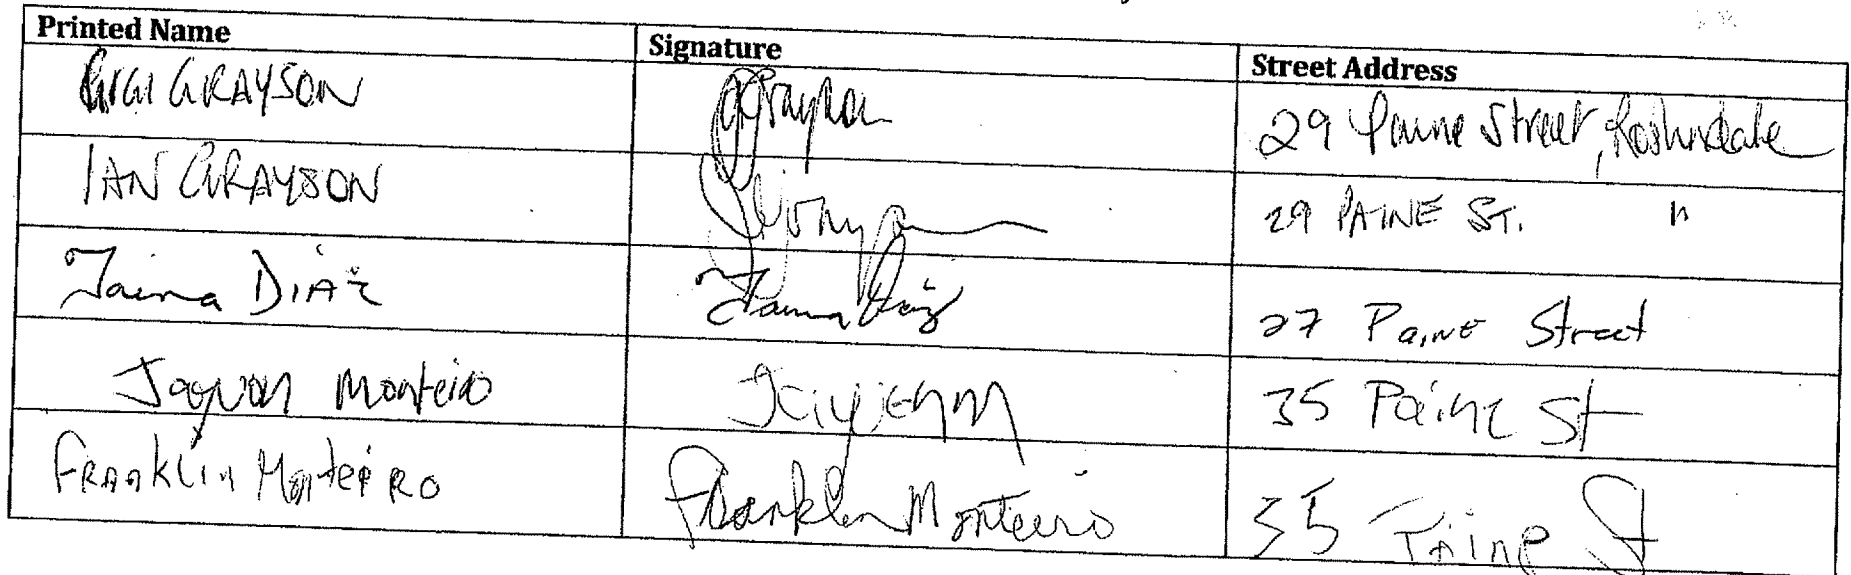 Printed Name Signature Street Address
GIGI GRAYSON GGrayson 29 Paine Street, Roslindale
IAN GRAYSON 29 PAINE ST. "
Taina DIAZ Taina Diaz 27 PAINE Street
Jaquon Monteiro 35 Paine St
FRANKLIN MONTEIRO Franklin Monteiro 35 Paine St